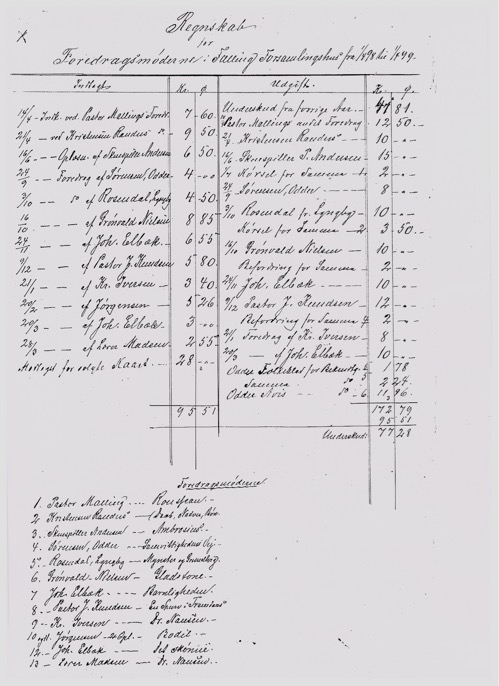 Regnskab
for
Foredragsmøderne i Falling Forsamlingshus fra 1/4 98 til 1/4 99.
Indtægt Kr. Ø
14/4 - Indt. ved Pastor Mallings Foredr. 7 60
21/4 - ved Kristensen Randers do. 9 50
16/6 - - Oplæsn. af Skuespiller Andersen 6 50
24/9 - - Foredrag af Sørensen, Odder 4 - "
3/10 - - do af Rosendal, Lyngby 4 50
16/10 - - af Grönvald Nielsen 8 85
24/11 - - af Joh. Elbæk 6 55
9/12 - - af Pastor J. Knudsen 5 80
21/1 - - af Kr. Iversen 3 40
20/2 - - af Jörgensen 5 26
20/3 - - af Joh. Elbæk 3 - "
28/3 - - af Lærer Madsen 2 55
Modtaget for solgte Kaart 28 - "
95 51
Udgift. Kr. Ø
Underskud fra forrige Aar 47 81
Pastor Mallings Foredrag 12 50
21/4 Kristensen Randers 10 - "
16/6 Skuespiller P. Andersen 15 - "
Kørsel for Samme 2 - "
24/9 Sørensen, Odder 8 - "
3/10 Rosendal fr. Lyngby 10 - "
Kørsel for Samme 3 50
16/10 Grönvald Nielsen 10 - "
Befordring for Samme 2 - "
24/11 Joh. Elbæk 10 - "
9/12 Pastor J. Knudsen 12 - "
Befordring for Samme 2 - "
21/1 Foredrag af Kr. Iversen 8 - "
20/3 - af Joh. Elbæk 10 - "
Odder Folkeblad for Bekendtg. 1 78
Samme do 2 24
Odder Avis do 6 96
172 79
95 51
Underskud: 77 28
Foredragsmøderne
1. Pastor Malling - Rousseau
2 Kristensen Randers
3. Skuespiller Andersen - Ambrosius
4. Sørensen, Odder - Samvittigheden
5. Rosendal, Lyngby - Mynster og Grundtvig
6. Grönvald Nielsen - Gladstone
7 Joh. Elbæk - Barnligheden
8. Pastor J. Knudsen - En Spurv i Tranedans
9 - Kr. Iversen - Dr. Nansen
10 Jörgensen - Bodil
12. - Joh. Elbæk - Det skönne
13 - Lærer Madsen - Dr. Nansen